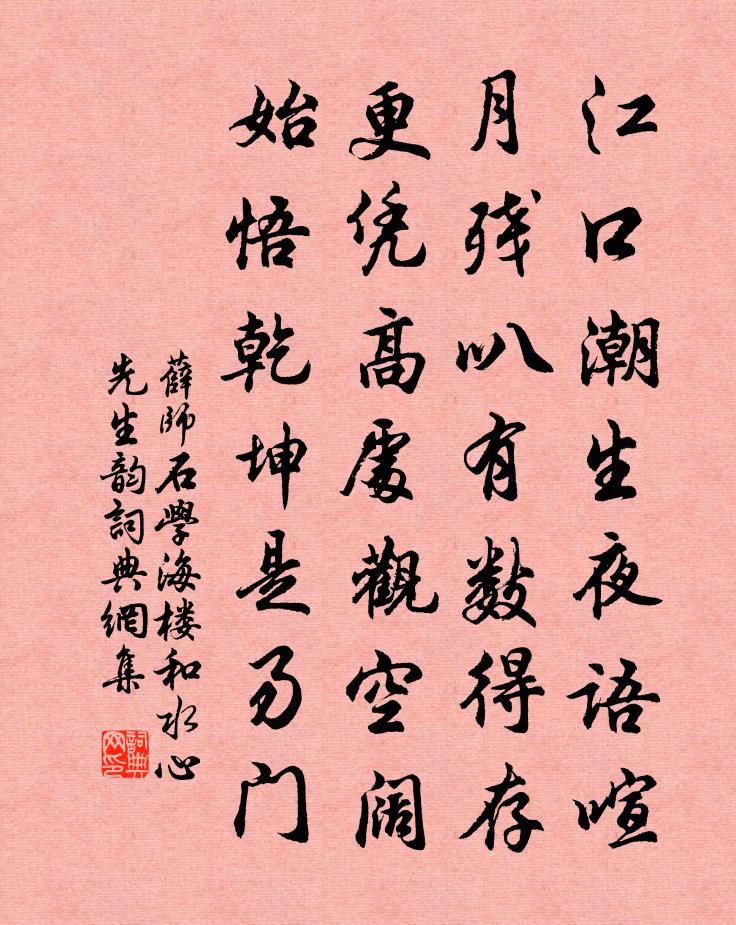 江口潮生夜语喧
月残叭有数得存
更凭高處觀空阔
始悟乾坤是易门
薛师石學海楼和水心
先生韵詞典網集
詞典网印